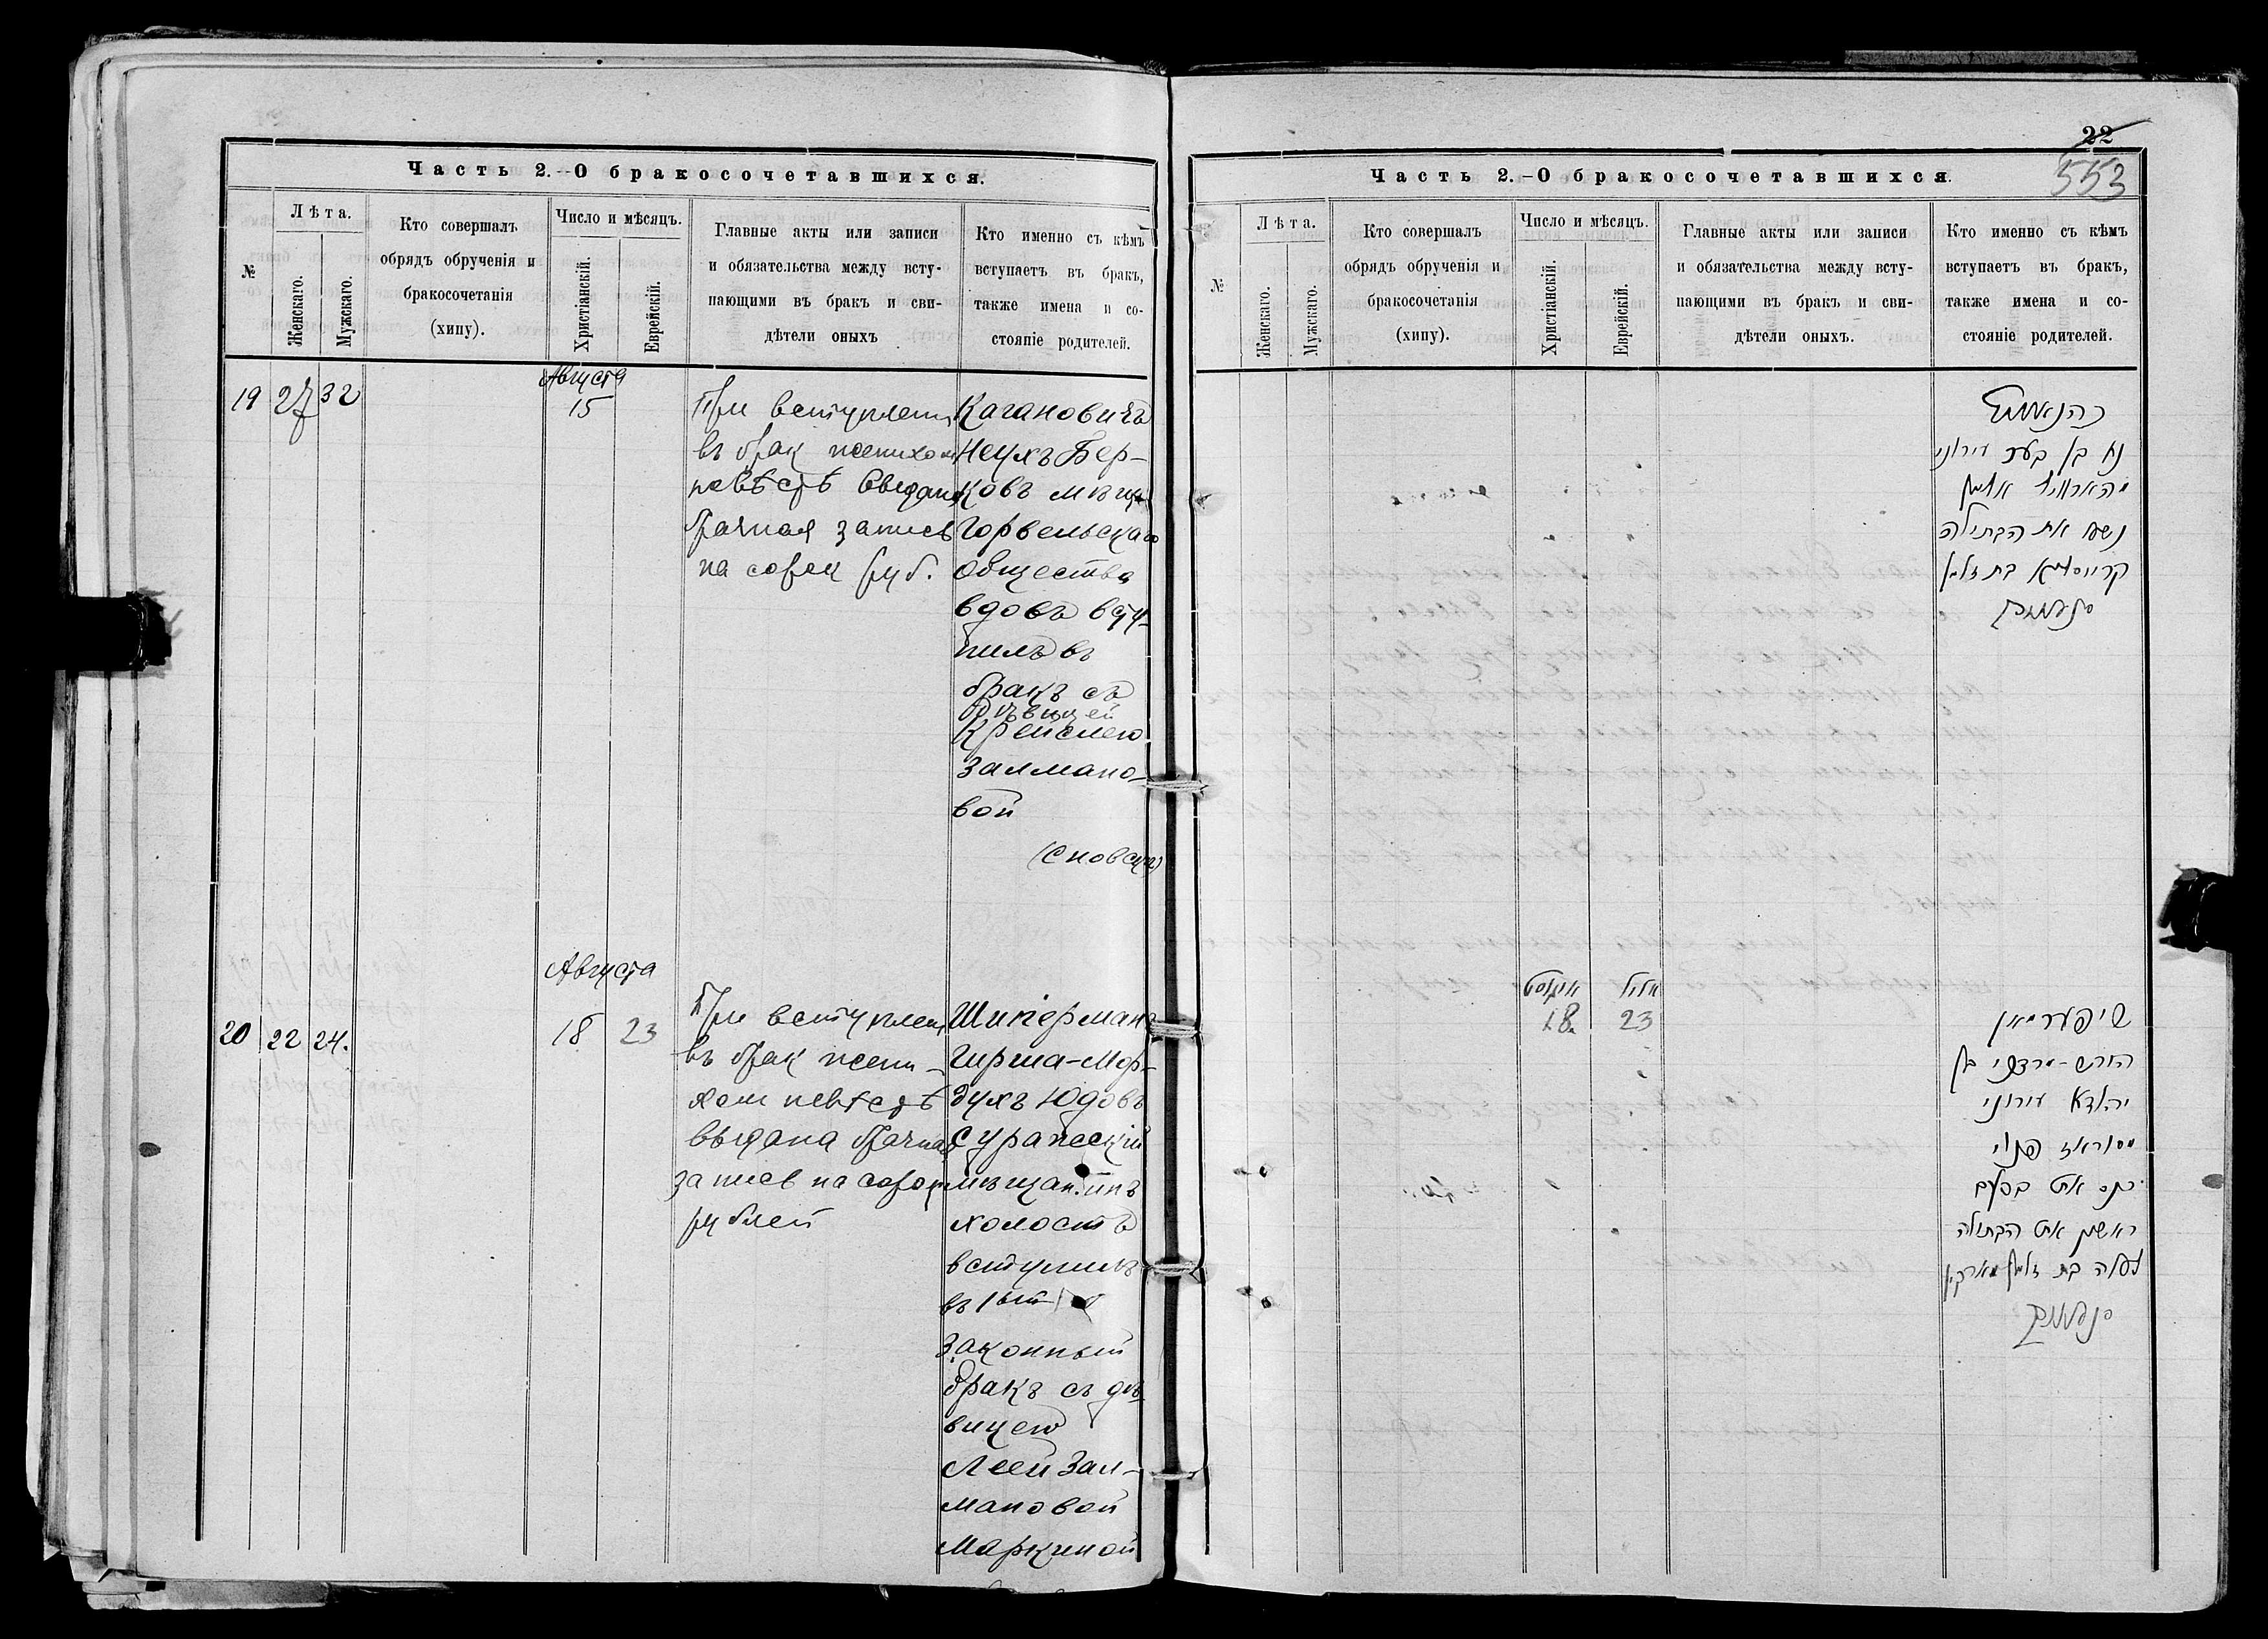 Часть 2.—О бракосочетавшихся.
№
Лѣта.
Женскаго.
Мужскаго.
Кто совершалъ
обрядъ обрученія и
бракосочетанія
(хипу).
Число и мѣсяцъ.
Христіанскій.
Еврейскій.
Главные акты или записи
и обязательства между всту-
пающими въ бракъ и сви-
дѣтели оныхъ
Кто именно съ кѣмъ
вступаетъ въ бракъ,
также имена и со-
стояніе родителей.
19 27 32
Августа
15
При вступлени
въ брак женихом
невѣстѣ выдана
брачная запись
на сорок руб.
Кагановичъ
Неухъ Бер-
ковъ мѣщ.
Горвельскаго
общества
вдовъ всту-
пилъ въ
бракъ съ
дѣвицей
Крейслею
Залмано-
вой
(Сновск)
20 22 24.
Августа
18 23
При вступлени
въ брак жени-
хом невѣстѣ
выдана брачная
запись на сорок
рублей
Шиперманъ
Гирша-Мор-
духъ Юдовъ
Суражскій
мѣщанинъ
холостъ
вступилъ
въ 1ый
законный
бракъ съ дѣ-
вицею
Леей Зал-
мановой
Маркиной
22
553
Часть 2.—О бракосочетавшихся.
№
Лѣта.
Женскаго.
Мужскаго.
Кто совершалъ
обрядъ обрученія и
бракосочетанія
(хипу).
Число и мѣсяцъ.
Христіанскій.
Еврейскій.
Главные акты или записи
и обязательства между всту-
пающими въ бракъ и сви-
дѣтели оныхъ.
Кто именно съ кѣмъ
вступаетъ въ бракъ,
также имена и со-
стояніе родителей.
בן עירוני
את הבתולה
בת זלמן
אויגוסט אלול
18 23
שיפערמאן
הירש-מרדכי בן
יהודא עירוני
פנוי
בפעם
ראשון את הבתולה
בת זלמן מארקין